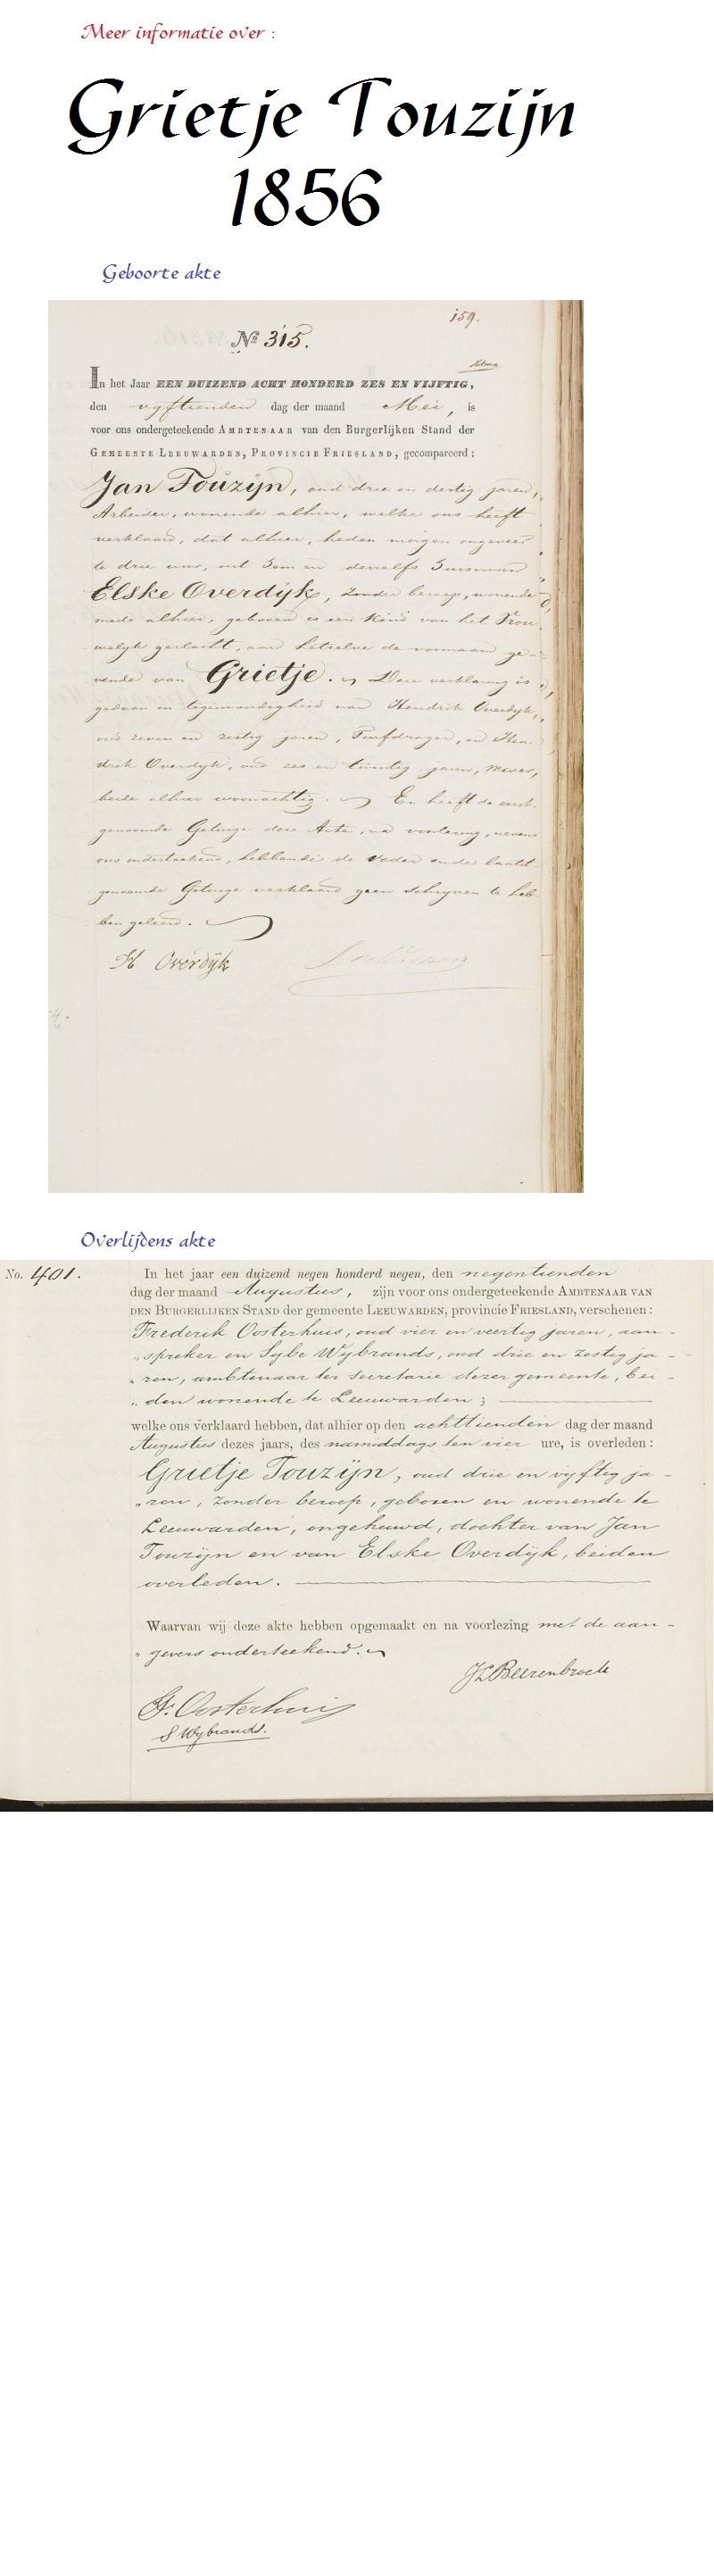 Meer informatie over :
Grietje Touzijn
1856
Geboorte akte
159.
No 315.
In het Jaar EEN DUIZEND ACHT HONDERD ZES EN VIJFTIG,
den vyftienden dag der maand Mei, is
voor ons ondergeteekende AMBTENAAR van den Burgerlijken Stand der
GEMEENTE LEEUWARDEN, PROVINCIE FRIESLAND, gecompareerd :
Jan Touzijn, oud drie en dertig jaren,
Arbeider, wonende alhier, welke ons heeft
verklaard, dat alhier, heden morgen ongeveer
te drie uur, uit hem en deszelfs huisvrouw
Elske Overdijk, zonder beroep, wonende
mede alhier, geboren is een kind van het Vrou-
welyk geslacht, aan hetzelve de voornaam ge-
vende van Grietje. Deze verklaring is
gedaan in tegenwoordigheid van Hendrik Overdyk,
oud zeven en zestig jaren, Turfdrager, en Hen-
drik Overdyk, oud zes en twintig jaren,
beide alhier woonachtig. En heeft de eerst-
genoemde Getuige deze Akte, na voorlezing, nevens
ons onderteekend, hebbende de Vader en de laatst-
genoemde Getuige verklaard geen schryven te heb-
ben geleerd.
H Overdijk
Overlijdens akte
No. 401.
In het jaar een duizend negen honderd negen, den negentienden
dag der maand Augustus, zijn voor ons ondergeteekende AMBTENAAR VAN
DEN BURGERLIJKEN STAND der gemeente LEEUWARDEN, provincie FRIESLAND, verschenen :
Frederik Oosterhuis, oud vier en veertig jaren, aan-
„spreker en Sybe Wybrands, oud drie en zestig ja-
„ren, ambtenaar ter secretarie dezer gemeente, bei-
„den wonende te Leeuwarden ;
welke ons verklaard hebben, dat alhier op den achttienden dag der maand
Augustus dezes jaars, des namiddags ten vier ure, is overleden :
Grietje Touzijn, oud drie en vijftig ja-
„ren, zonder beroep, geboren en wonende te
Leeuwarden, ongehuwd, dochter van Jan
Touzijn en van Elske Overdijk, beiden
overleden.
Waarvan wij deze akte hebben opgemaakt en na voorlezing met de aan-
„gevers onderteekend.
JLBeerenbrock
F. Oosterhuis
S Wybrands.